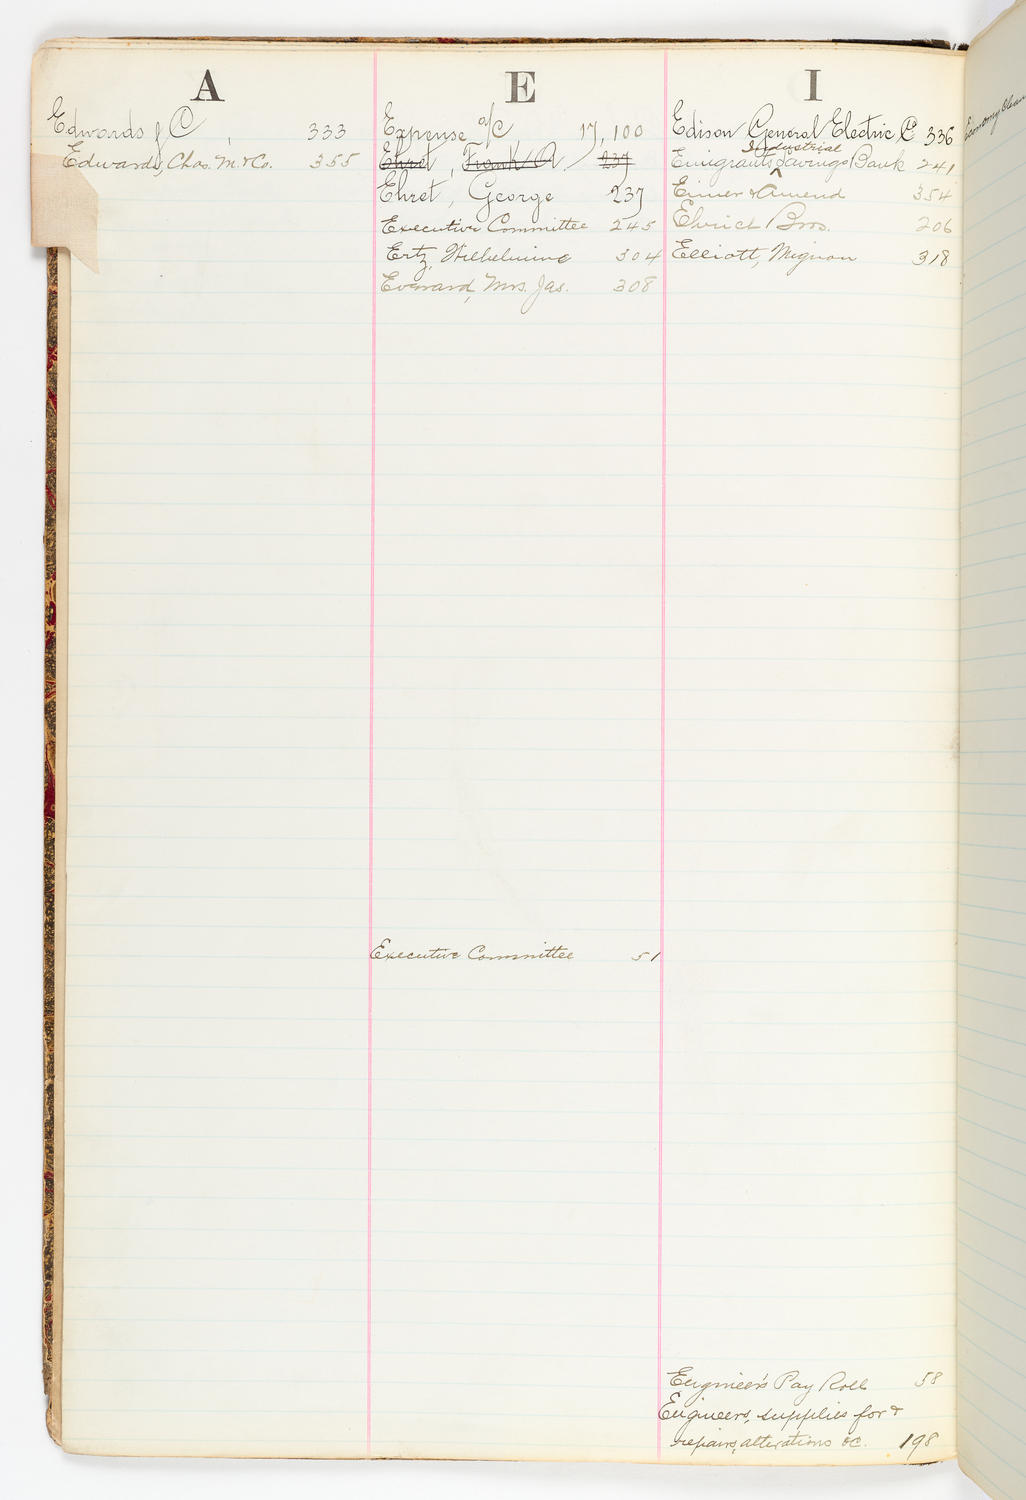 A
Edwards & Co 333
Edwards, Chas. M. & Co. 355
E
Expense a/c 17, 100
Ehret, Frank A. 237
Ehret, George 237
Executive Committee 245
Ertz, Wilhelmine 304
Everard, Mrs. Jas. 308
Executive Committee 51
I
Edison General Electric Co 336
Industrial
Emigrants Savings Bank 241
Eimer & Amend 354
Ehrich Bros. 206
Elliott, Mignon 318
Engineer's Pay Roll 58
Engineers, supplies for &
repairs, alterations &c. 198
Economy